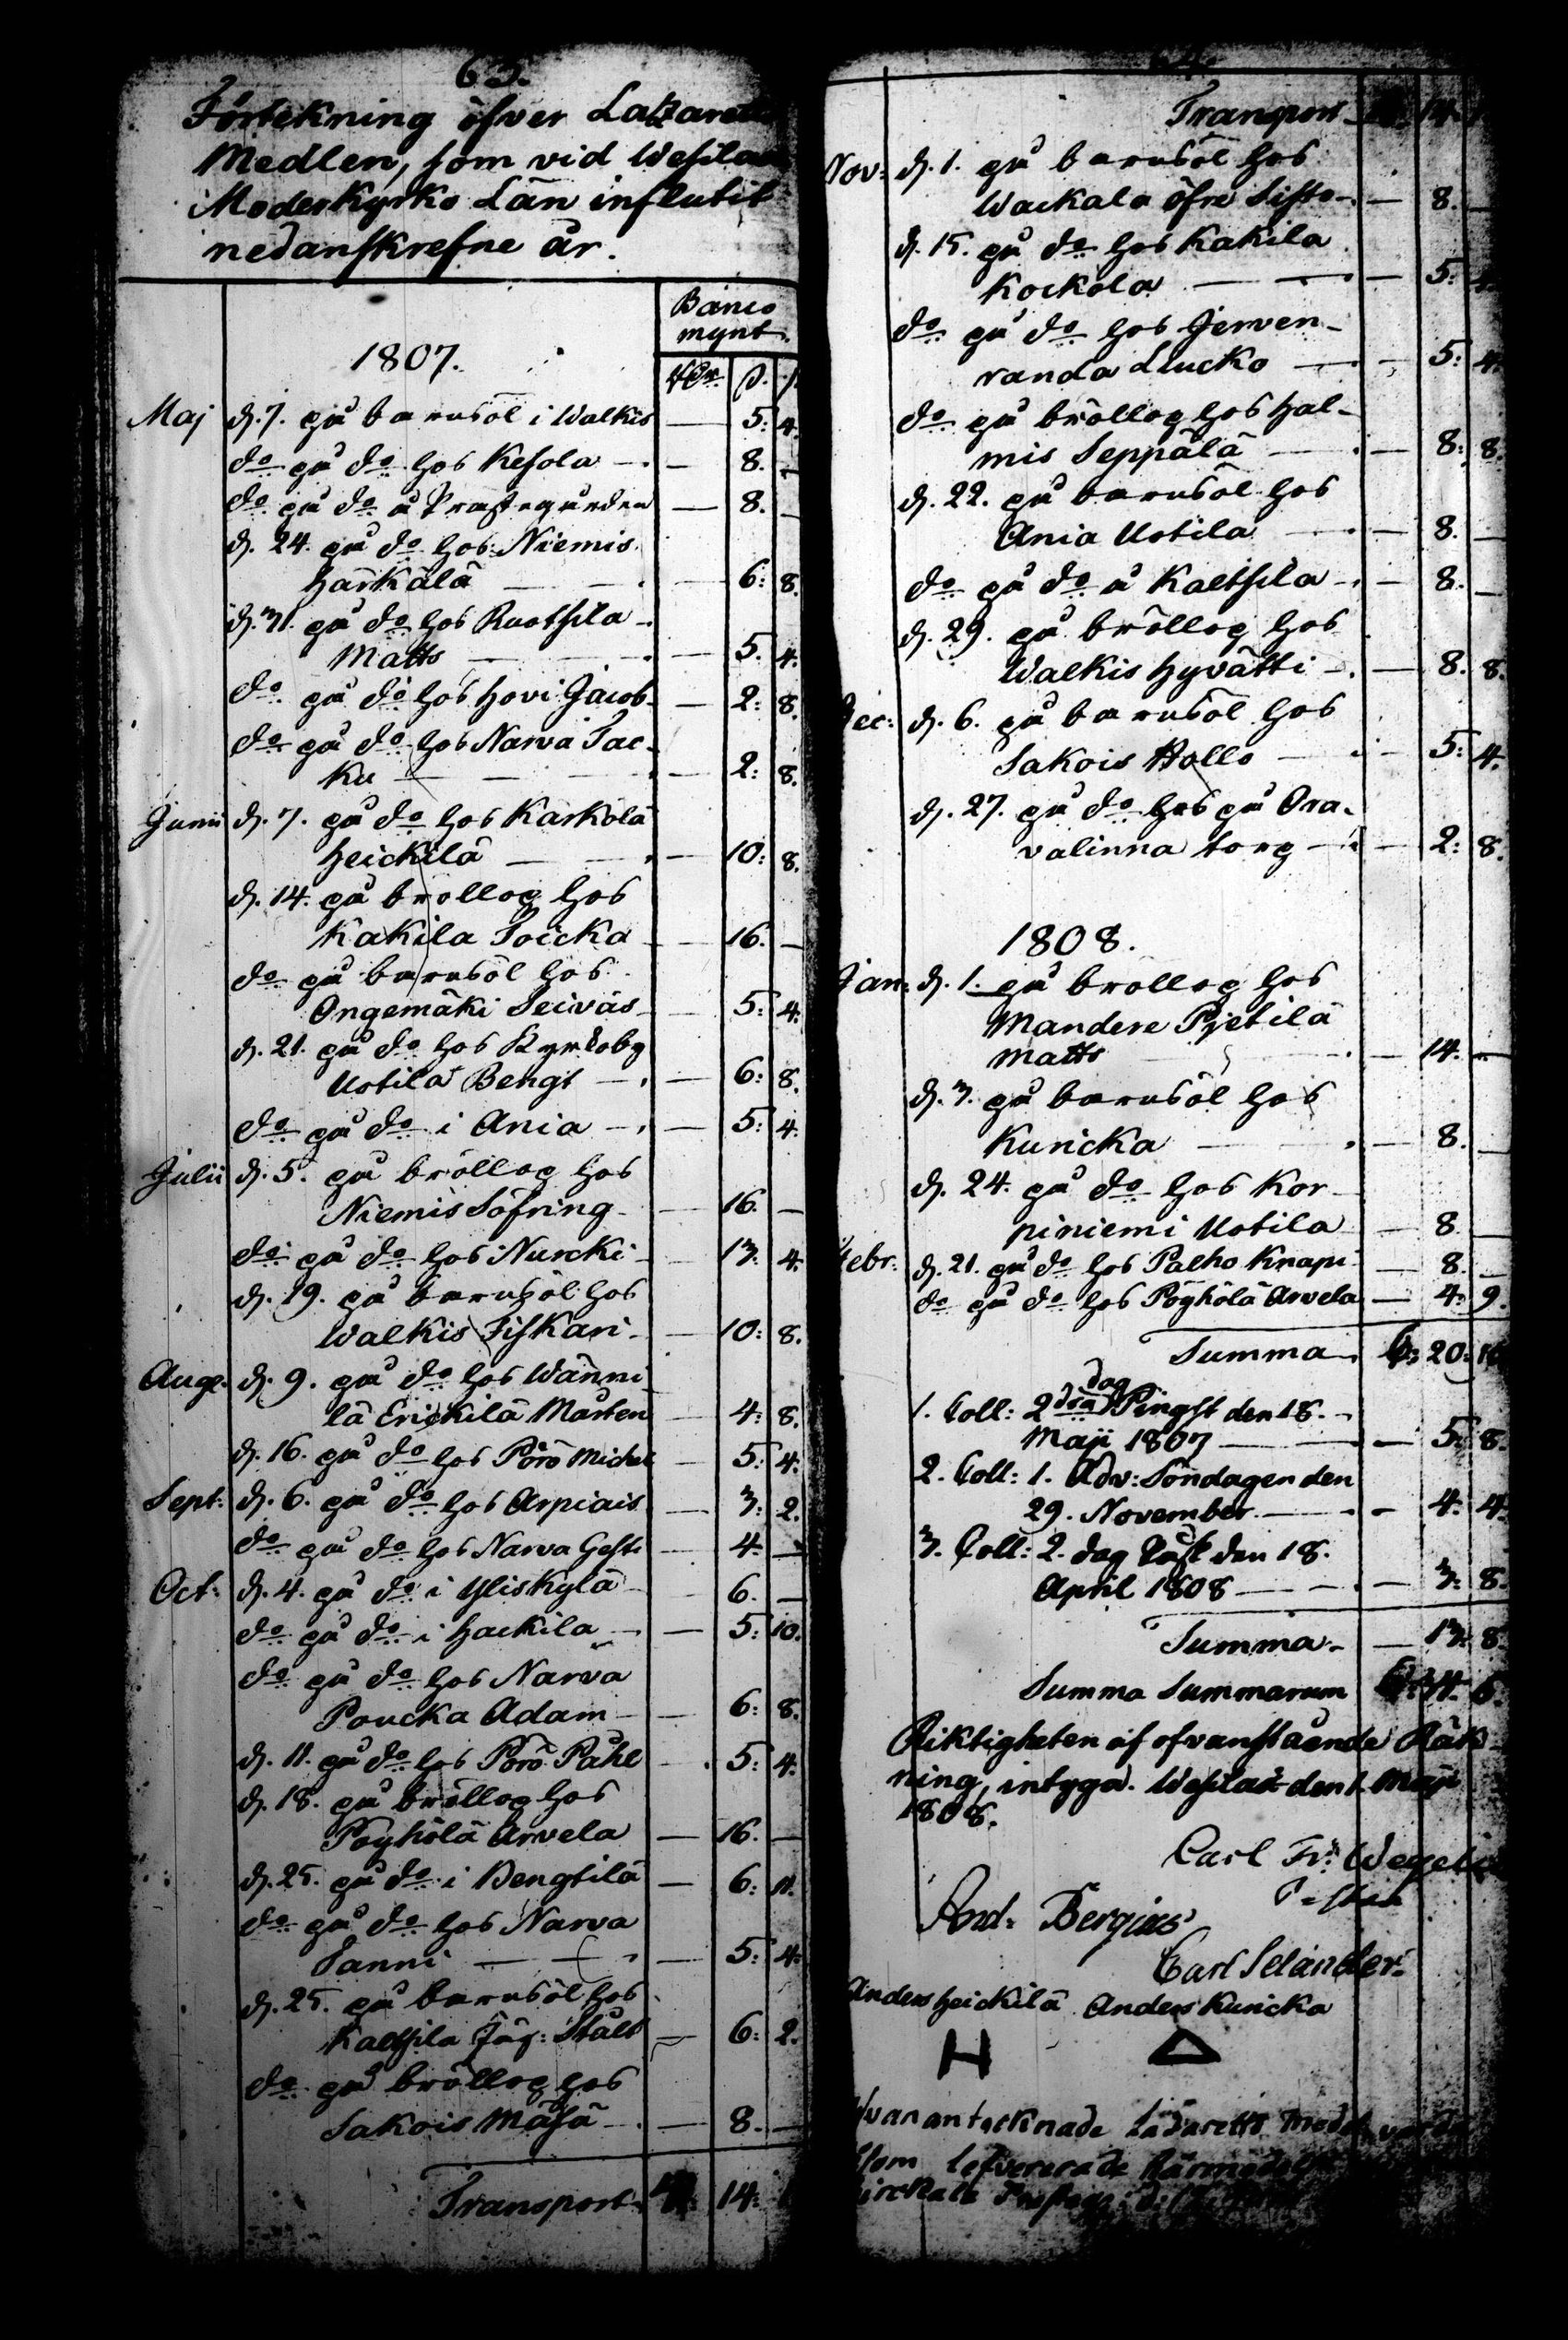 63.
Förtekning öfver Lazaretts
Medlen, som vid Wesila
Moderkyrko Län influtit
nedanskrefne år.
Banco
mynt.
1807.
Rdr ß. r.
Maj d. 7. på barnsöl i Walkis — 5: 4.
do på do hos Kesola — 8. —
do på do å Prästegården — 8. —
d. 24. på do hos Niemis
Härkälä — 6: 8.
d. 31. på do hos Ruotsila
Matts — 5. 4.
do på do hos Hovi Jacob — 2: 8.
do på do hos Narva Jac-
ku — 2: 8.
Junii d. 7. på do hos Karkola
Heickilä — 10: 8.
d. 14. på bröllop hos
Kakila Toicka — 16. —
do på barnsöl hos
Ongemäki Seiväs — 5: 4.
d. 21. på do hos Kyrkoby
Uotila Bengt — 6: 8.
do på do i Ania — 5: 4.
Julii d. 5. på bröllop hos
Niemis Söfring — 16. —
do på do hos Nurcki — 13: 4.
d. 19. på barnsöl hos
Walkis Fiskari — 10: 8.
Aug. d. 9. på do hos Wänni
lä Erickilä Mårten — 4: 8.
d. 16. på do hos Pörö Michel — 5: 4.
Sept: d. 6. på do hos Arpiais — 3: 2.
do på do hos Narva Gesti — 4. —
Oct: d. 4. på do i Yliskylä — 6. —
do på do i Hackila — 5: 10.
do på do hos Narva
Poucka Adam — 6: 8.
d. 11. på do hos Pörö Påhl — 5: 4.
d. 18. på bröllop hos
Pöyhölä Arvela — 16. —
d. 25. på do i Bengtilä — 6: 11.
do på do hos Narva
Janni — 5: 4.
d. 25. på barnsöl hos
Kaltsila Stålt — 6: 2.
do på bröllop hos
Sakois Mäsä — 8. —
Transport 14:
64.
Transport 14.
Nov: d. 1. på barnsöl hos
Wackala öfre Sifto — 8. —
d. 15. på do hos Kakila
Kockola — 5: 4.
do på do hos Jerven-
randa Llucko — 5: 4.
do på bröllop hos Hal-
mis Seppälä — 8: 8.
d. 22. på barnsöl hos
Ania Uotila — 8. —
do på do å Kaltsila — 8. —
d. 29. på bröllop hos
Walkis Hyvätti — 8. 8.
Dec: d. 6. på barnsöl hos
Sakois Hollo — 5: 4.
d. 27. på do hos på Ora-
valinna torg — 2: 8.
1808.
Jan: d. 1. på bröllop hos
Mandere Pietilä
Matts — 14. —
d. 3. på barnsöl hos
Kuricka — 8. —
d. 24. på do hos Kor-
piniemi Uotila — 8. —
Febr: d. 21. på do hos Palho Knapi — 8. —
do på do hos Pöyhölä Arvela — 4: 9.
Summa 6: 20: 10
1. Coll: 2dra dag Pingst den 18.
Maji 1807 — 5: 8.
2. Coll: 1. Adv: Söndagen den
29. November — 4: 4.
3. Coll: 2. dag Påsk den 18.
April 1808 — 3: 8.
Summa — 13: 8.
Summa Summarum 6: 34. 6.
Riktigheten af ofvanstående Räk
ning, intyga. Wesilax den 1. Maji
1808.
Carl Fr: Wegelius
And: Bergius
Carl Selander
Anders Heickilä Anders Kuricka
H Δ
antecknade Lazaretts Medel
lefvererade